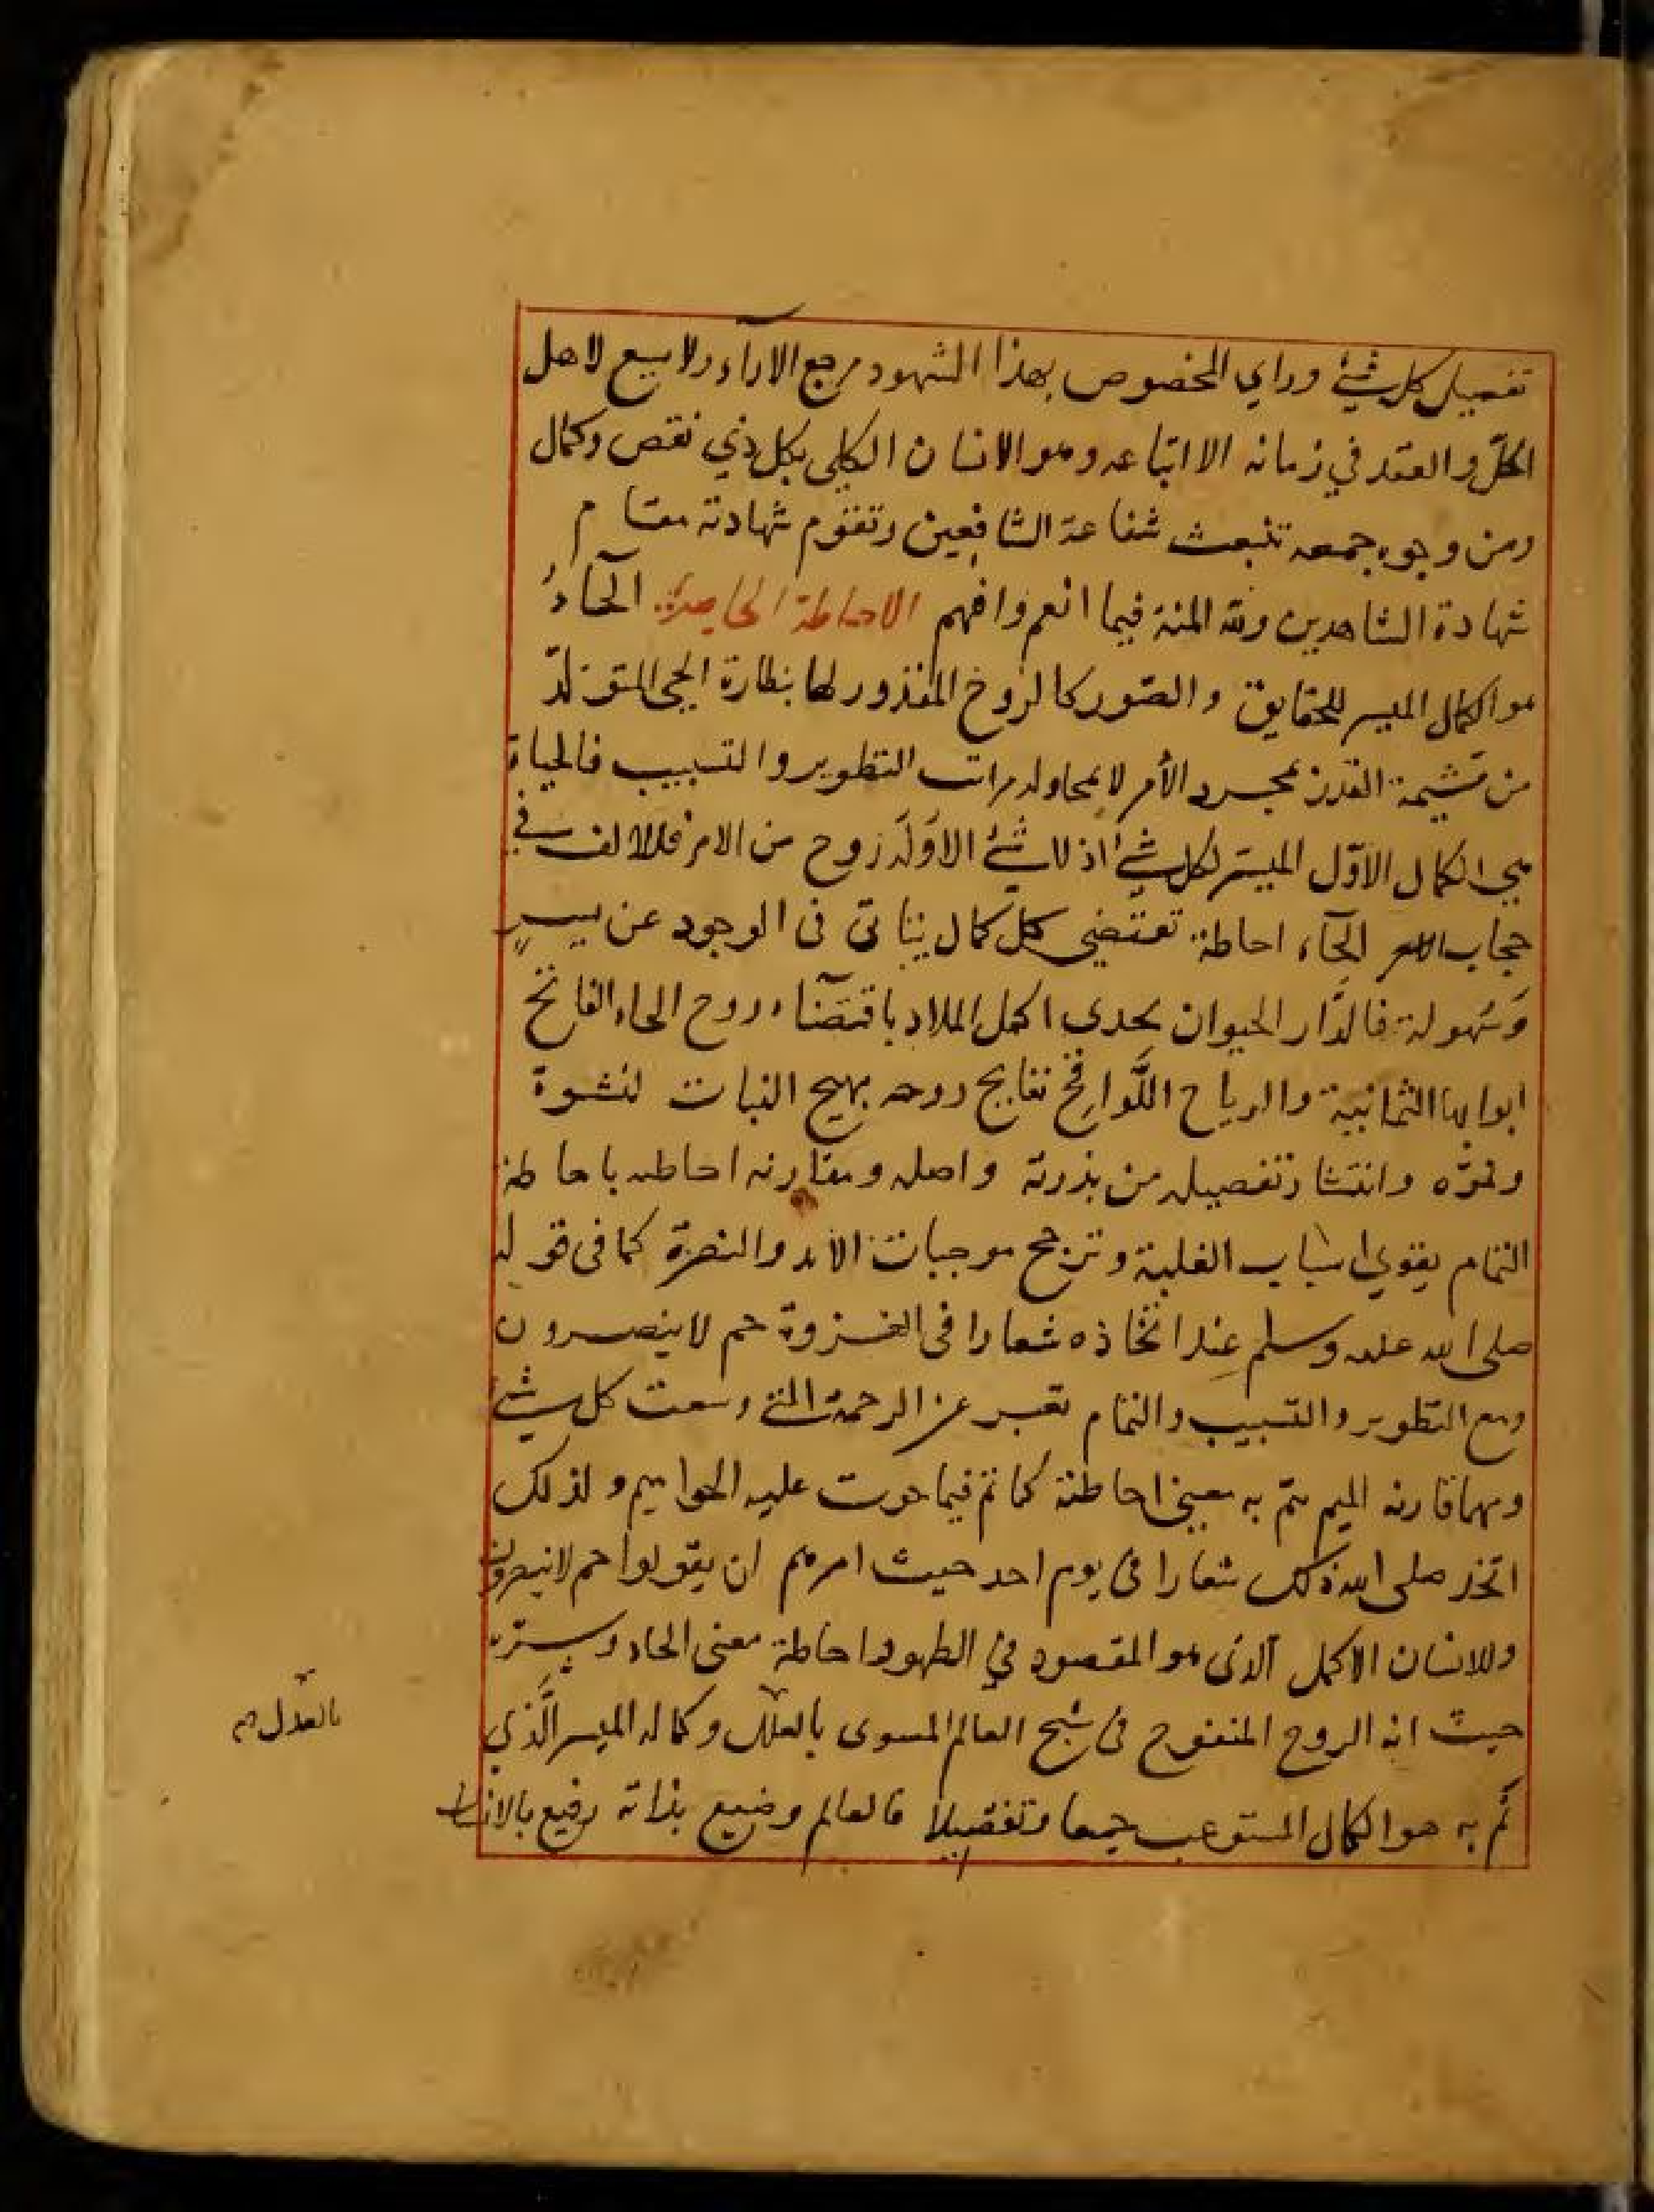 تفصيل كل شئ وراي المخصوص بهذا الشهود مرجع الاراء ولا يسع لاهل
الحلّ والعقد في زمانه الا اتباعه وهو الانسان الكلي بكل ذي نقص وكمال
ومن وجوه جمعه تنبعث شفاعة الشافعين وتقوم شهادته مقام
شهادة الشاهدين ولله المنة فيما انعم وافهم الاحاطة الحايية الحاءُ
هو الكمال الميسر للحقايق والصور كالروح المقدور لها
من مشيمة القدر بمجرد الأمر لا بمحاولة مرات التطوير والتسبيب فالحياة
هي الكمال الاوّل الميسّر لكل شئ اذ لا شئ الا وله روح من الامر فللالف في
حجاب الحآء احاطة تقتضي كل كمال يتاتى فى الوجود عن يسيرٍ
وسُهولة فالدَّار الحيوان احدى اكمل الملاد باقتضآء روح الحاء الفاتح
ابوابها الثمانية والرياح اللَّواقح نتايج روحه يهيج النبات لنشوة
ونموّه وانتشار تفصيله من بذرته واصله ومقارنه احاطته باحاطة
التمام يقوي اسباب الغلبة وترجح موجبات الأيد والنصرة كما فى قوله
صلى الله عليه وسلم عند اتخاذه شعارا فى الغزوة حم لا ينصرون
ومع التطوير والتسبيب والتمام تعبر عن الرحمة التي وسعت كل شئ
ومهما قارنه الميم يتمّ به معنى احاطته كما تم فيما حوت عليه الحواميم ولذلك
اتخذ صلى الله ذلك شعارا فى يوم احد حيث امرهم ان يقولوا حم لا ينصرون
وللانسان الاكمل الذى هو المقصود في الظهور احاطة معنى الحاء وسرّه
حيث انه الروح المنفوخ فى شبح العالم المسوى وكماله الميسر الَّذي
تَّم به هو الكمال المستوعب جمعا وتفصيلا فالعالم وضيع بذاته رفيع بالانسان
بالعدل صح